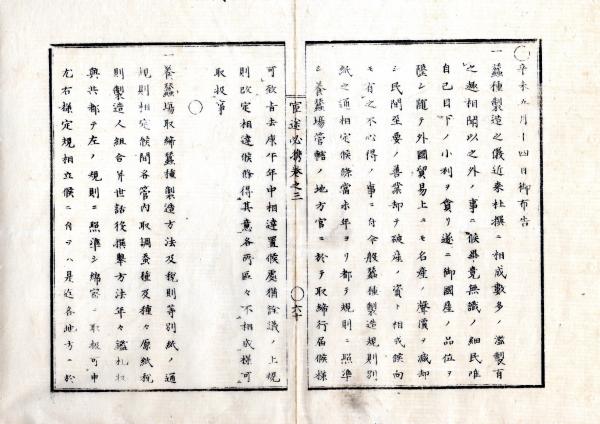 ◯辛未五月十四日御布告
一蚕種製造之儀近来杜撰ニ相成数多ノ濫製有
之趣相聞以之外ノ事ニ候畢竟無識ノ細民唯
自己目下ノ小利ヲ貪リ遂ニ御國産ノ品位ヲ
墜シ随テ外國貿易上ニモ名産ノ聲價ヲ減却
シ民間至要ノ善業却テ破産ノ資ト相成候向
モ有之不心得ノ事ニ付今般蚕種製造規則別
紙之通相定候條當未年ヨリ都テ規則ニ照準
シ養蚕場管轄ノ地方官ニ於テ取締行届候様
宦途必携巻之三
◯六十
可致旨去庚午年中相達置候處猶詮議ノ上規
則改定相達候條得其意各所區々不相成様可
取扱事
◯
一養蚕場取締蚕種製造方法及税則等別紙ノ通
規則相定候間各管内取調蚕種及種々原紙税
則製造人組合并世話役撰擧方法年々鑑札
與共都テ左ノ規則ニ照準シ綿密ニ取扱可申
尤右様定規相立候ニ付テハ是迄各地方ニ於